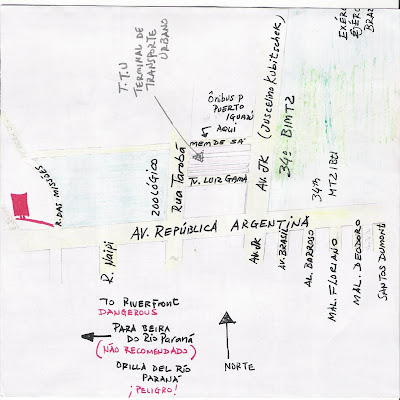 T.T.U
TERMINAL DE
TRANSPORTE
URBANO
Ônibus p
PUERTO
IGUAZÚ
AQUI
MEM DE SÁ
TV. LUIZ GAMA
ZOOLÓGICO
Rua Tarobá
AV. JK (Juscelino Kubitschek)
34º BIMTZ
34th
MTZ IBN
EXÉRC
EJÉRC
BRAZ
R. DAS MISSÕES
AV. REPÚBLICA ARGENTINA
R. Naipi
AV. JK
AV. BRASIL
AL. BARROSO
MAL. FLORIANO
MAL. DEODORO
SANTOS DUMONT
TO RIVERFRONT
DANGEROUS
PARA BEIRA
DO RÍO PARANÁ
(NÃO RECOMENDADO)
ORILLA DEL RÍO
PARANÁ
¡PELIGRO!
NORTE